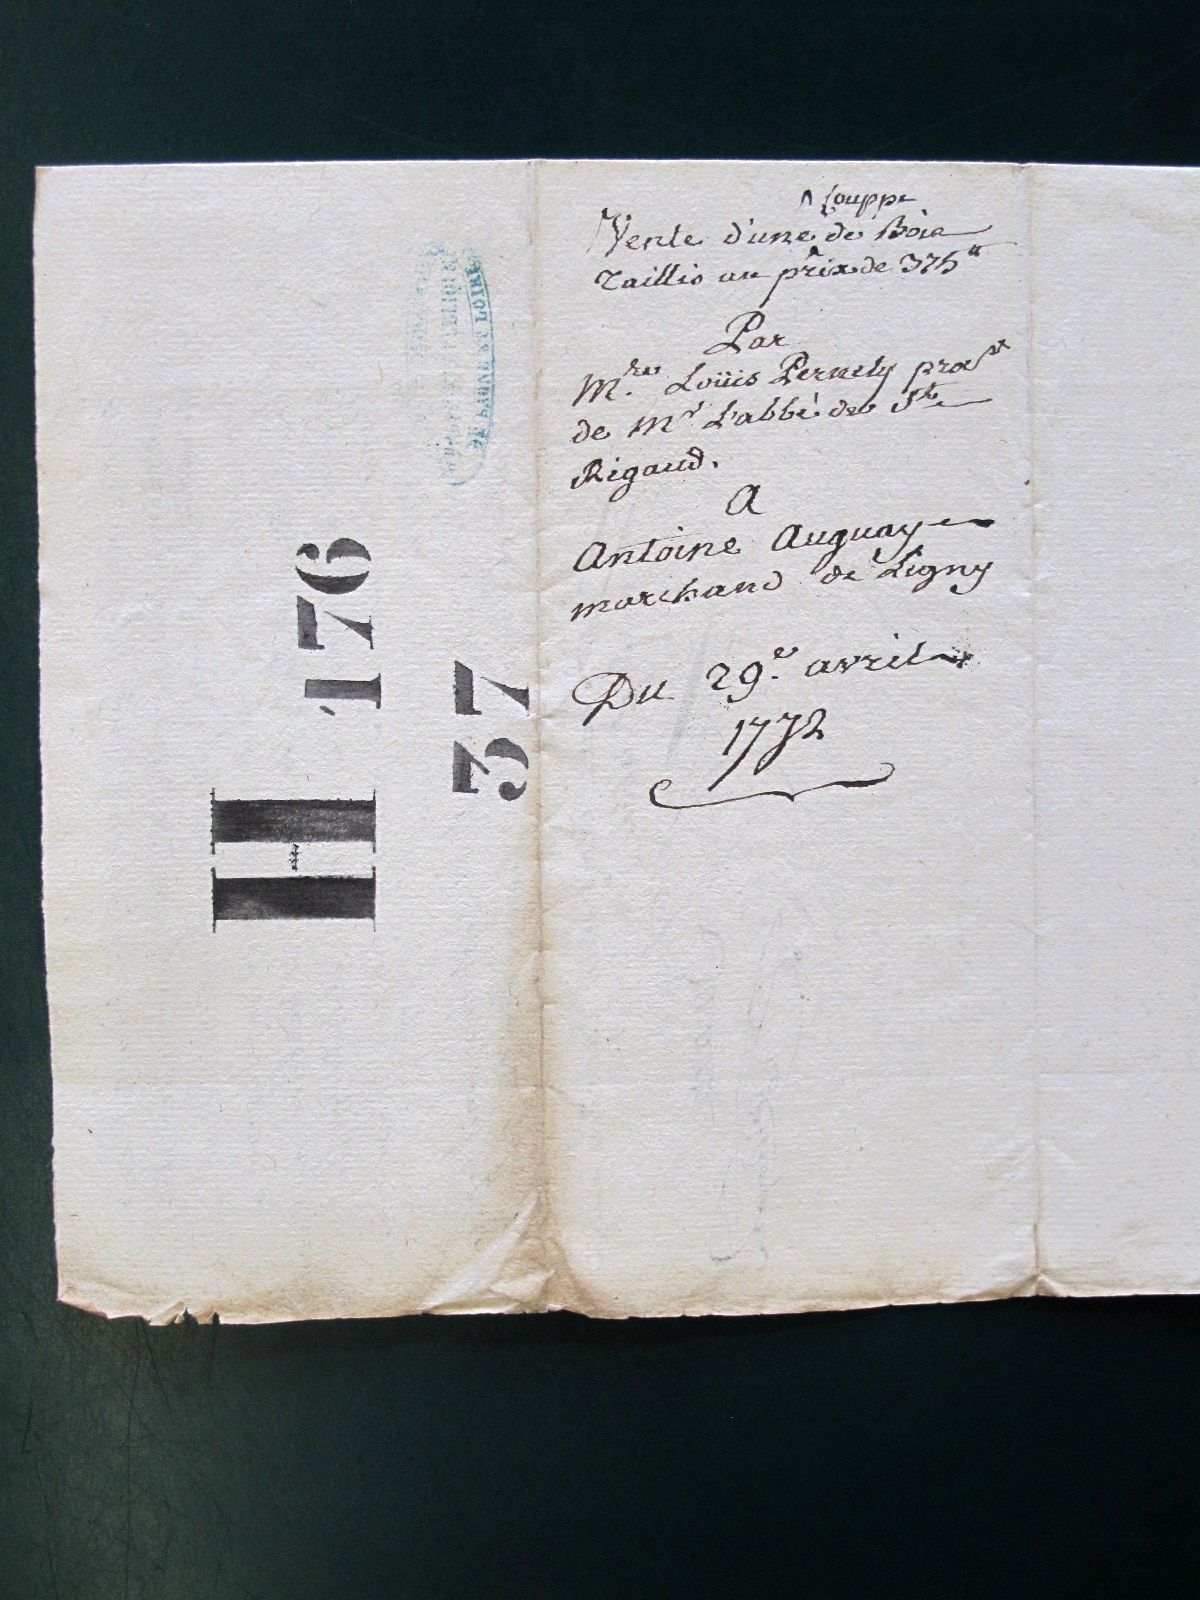 ^ Couppe
Vente d'une ^ de Bois
Taillis au prix de 375ᵗᵗ
Par
Mʳᵉ. Loüis Pernety procʳ
de Mʳ L'abbé de Sᵗ
Rigaud.
A
Antoine Auguay
marchand de Ligny
Du 29ᵉ. avril
1772
H 176
37
DE SAONE ET LOIRE